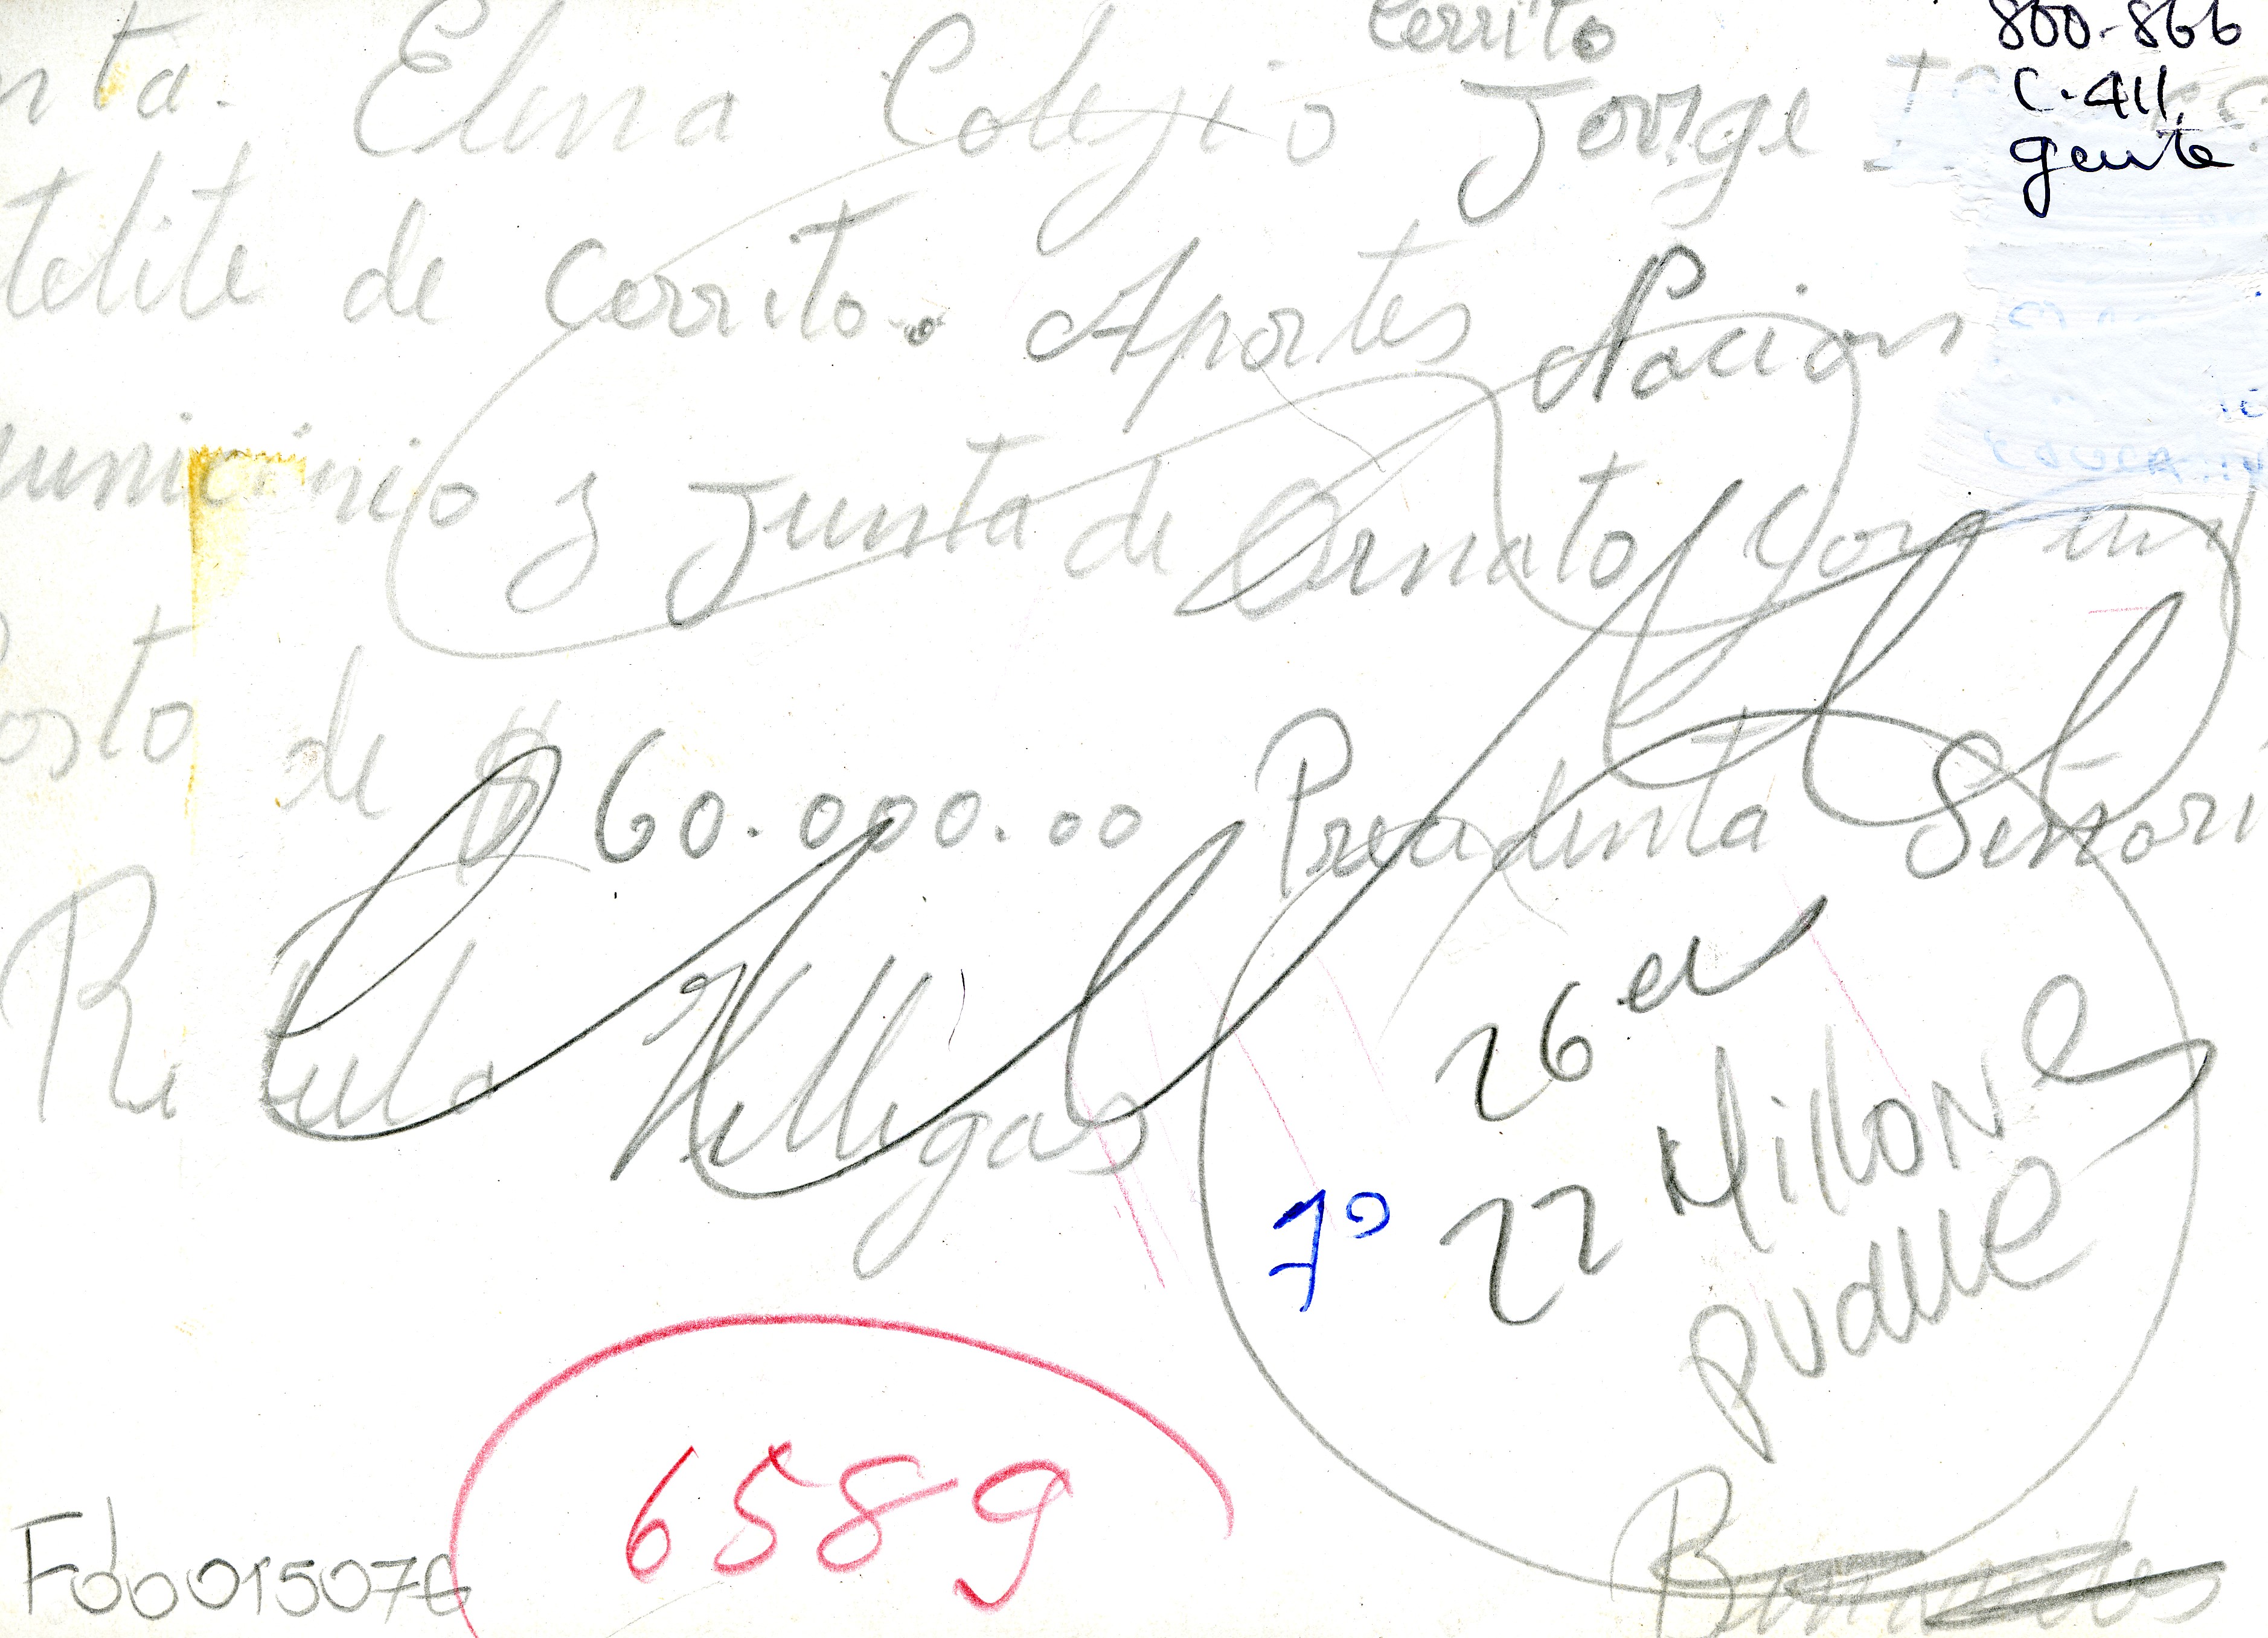 Cerrito
800-866
C-411
gente
nta. Elena Colegio Jorge
telite de Cerrito. Aportes Nacion
unicipio y Junta de Ornato con un
osto de $ 60.000.00 Presidenta Señori
Villegas
26 en
7º 22 Millones
pudue
6589
Fdo0015076